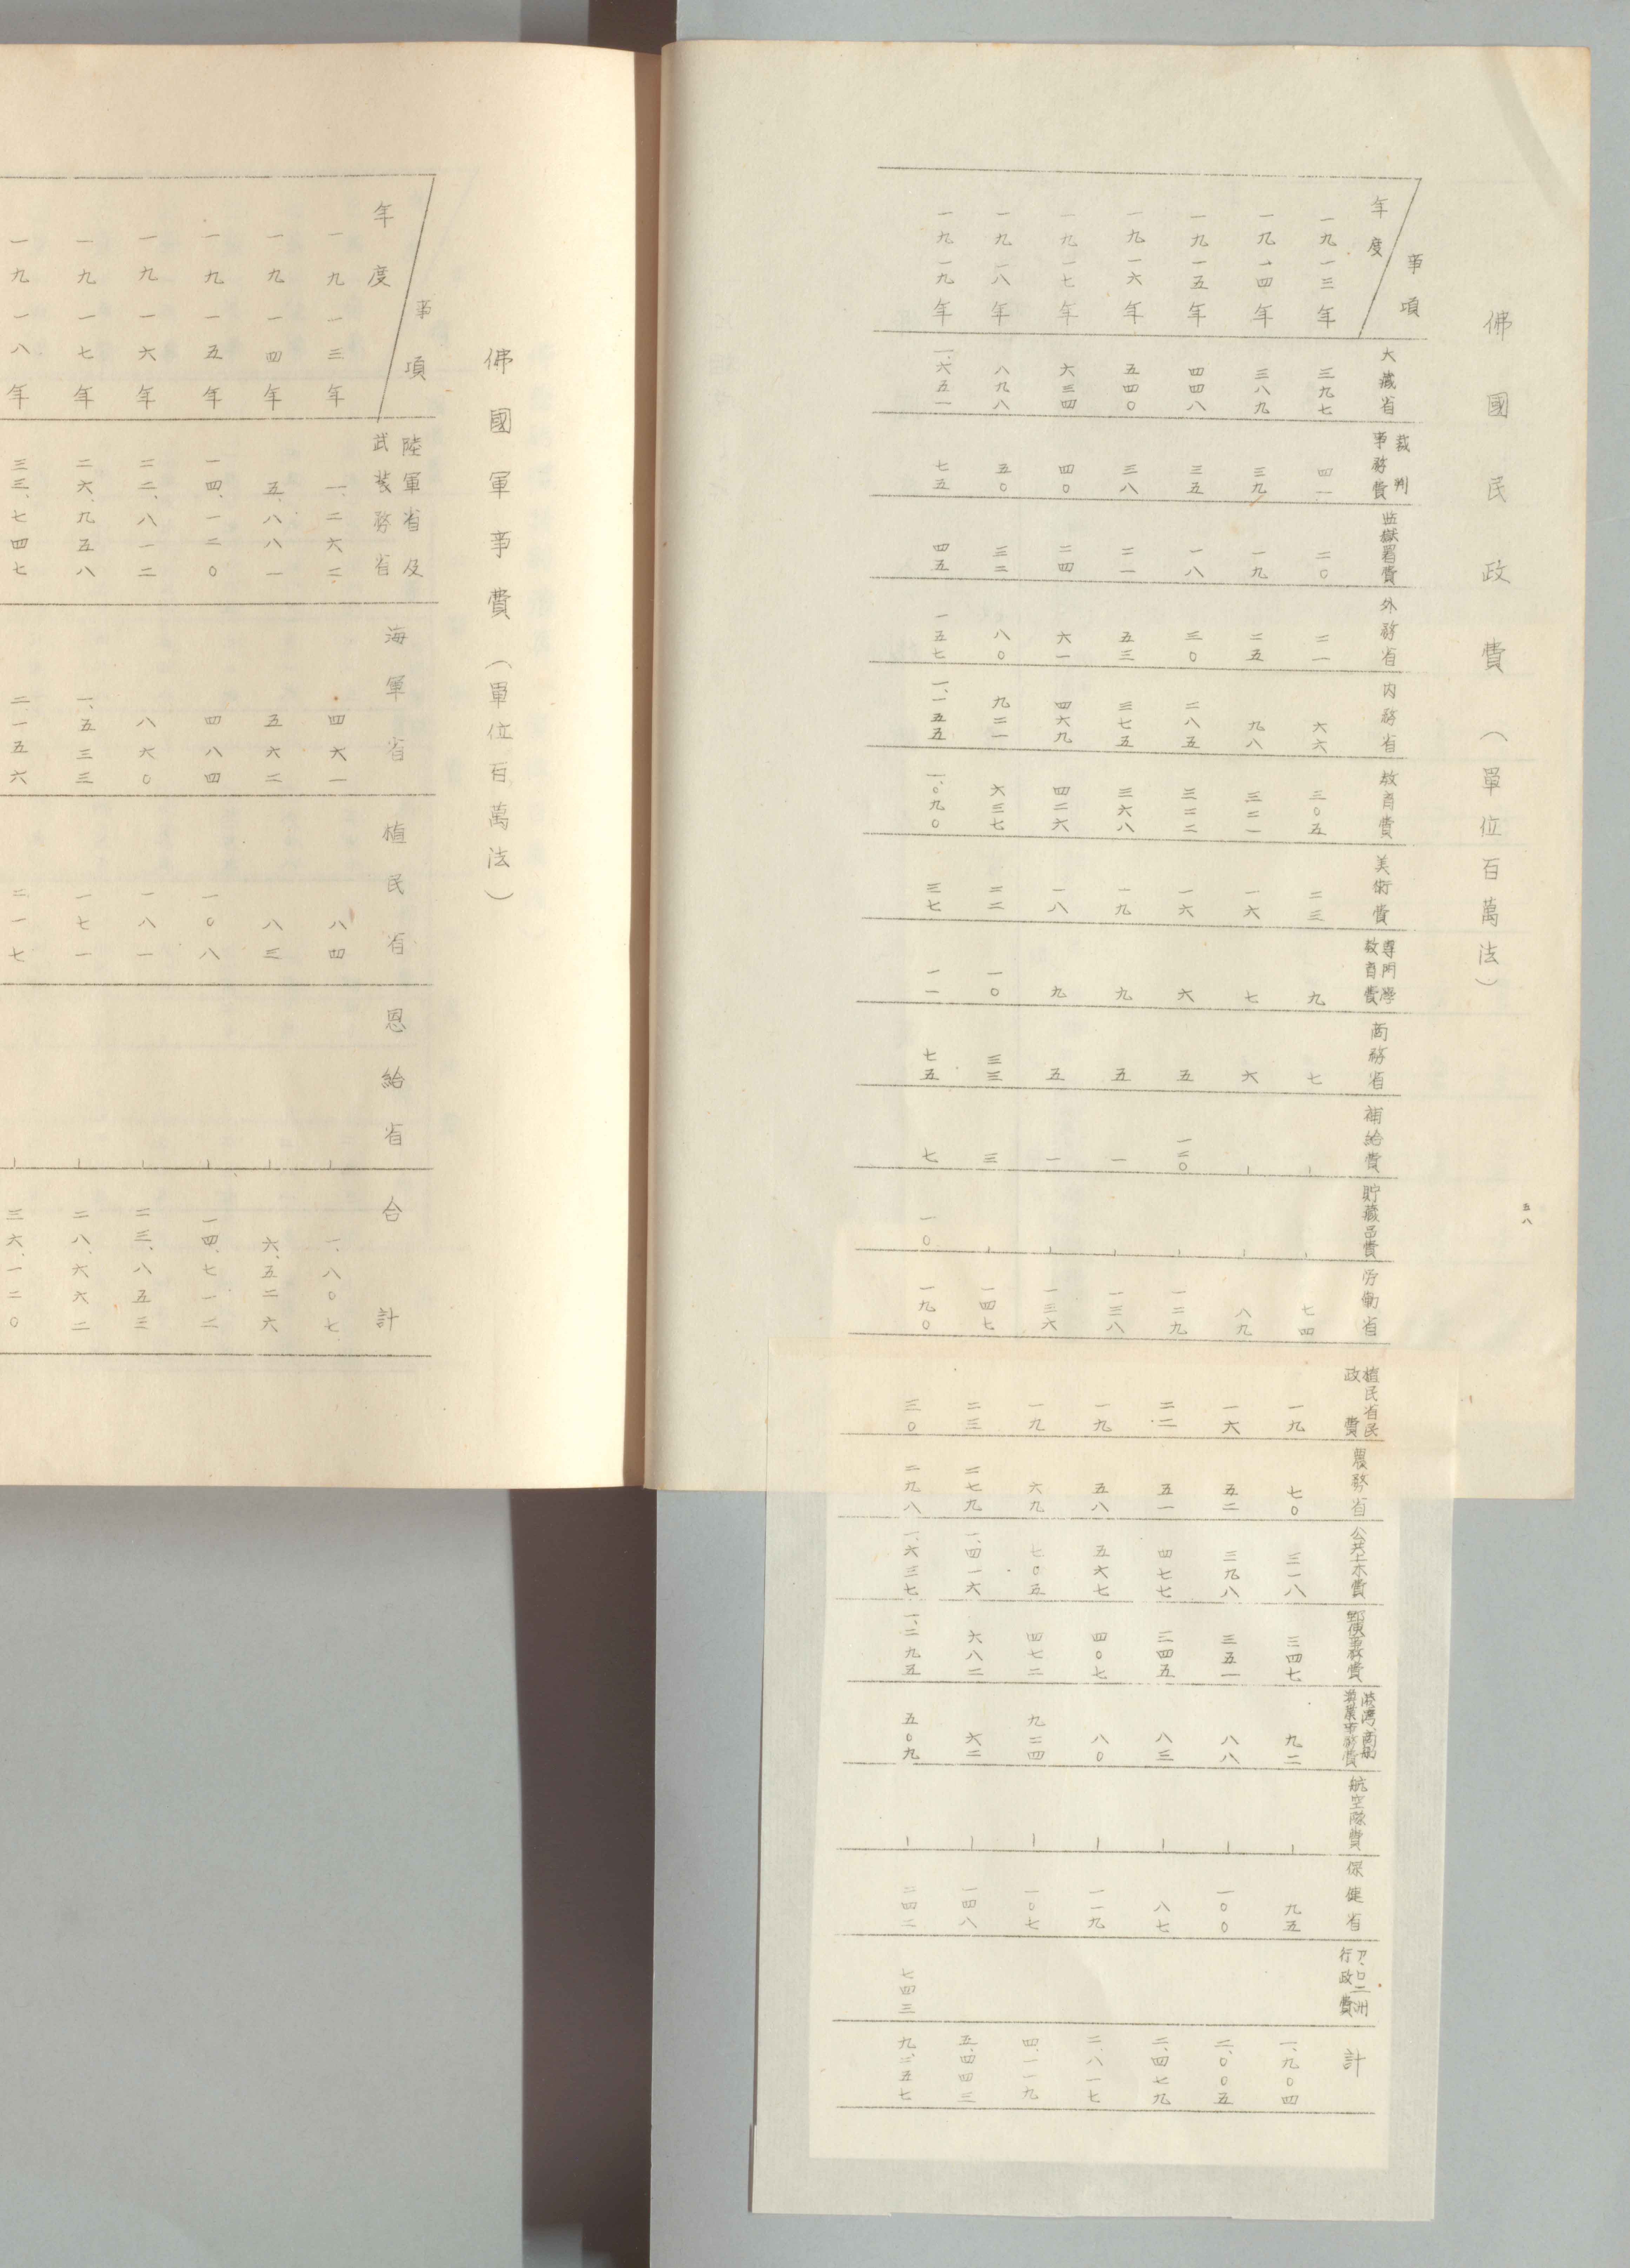 五八
佛國民政費（單位百萬法）
年度 事項 大藏省 裁判事務費 監獄署費 外務省 内務省 教育費 美術費 專門學教育費 商務省 補給費 貯藏品費 労働省 植民省民政費 農務省 公共土木費 郵便事務費 港湾、商船漁業事務費 航空隊費 保健省 ア、ロ二州行政費 計
一九一三年 三九七 四一 二〇 二一 六六 三〇五 二三 九 七 ー ー 七四 一九 七〇 三一八 三四七 九二 ー 九五 一、九〇四
一九一四年 三八九 三九 一九 二五 九八 三二一 一六 七 六 ー ー 八九 一六 五二 三九八 三五一 八八 ー 一〇〇 二、〇〇五
一九一五年 四四八 三五 一八 三〇 二八五 三二二 一六 六 五 一二〇 ー 一二九 二二 五一 四七七 三四五 八三 ー 八七 二、四七九
一九一六年 五四〇 三八 二一 五三 三七五 三六八 一九 九 五 一 ー 一三八 一九 五八 五六七 四〇七 八〇 ー 一一九 二、八一七
一九一七年 六三四 四〇 二四 六一 四六九 四二六 一八 九 五 一 ー 一三六 一九 六九 七〇五 四七二 九二四 ー 一〇七 四、一一九
一九一八年 八九八 五〇 三二 八〇 九二一 六三七 二二 一〇 三三 三 ー 一四七 二三 二七九 一、四一六 六八二 六二 ー 一四八 五、四四三
一九一九年 一、六五一 七五 四五 一五七 一、一五五 一、〇九〇 三七 一一 七五 七 一〇 一九〇 三〇 二九八 一、六三七 一、二九五 五〇九 ー 二四二 七四三 九、二五七
佛國軍事費（單位百萬法）
年度 事項 陸軍省及武装務省 海軍省 植民省 恩給省 合計
一九一三年 一、二六二 四六一 八四 ー 一、八〇七
一九一四年 五、八八一 五六二 八三 ー 六、五二六
一九一五年 一四、一二〇 四八四 一〇八 ー 一四、七一二
一九一六年 二二、八一二 八六〇 一八一 ー 二三、八五三
一九一七年 二六、九五八 一、五三三 一七一 ー 二八、六六二
一九一八年 三三、七四七 二一五六 二一七 ー 三六、一二〇